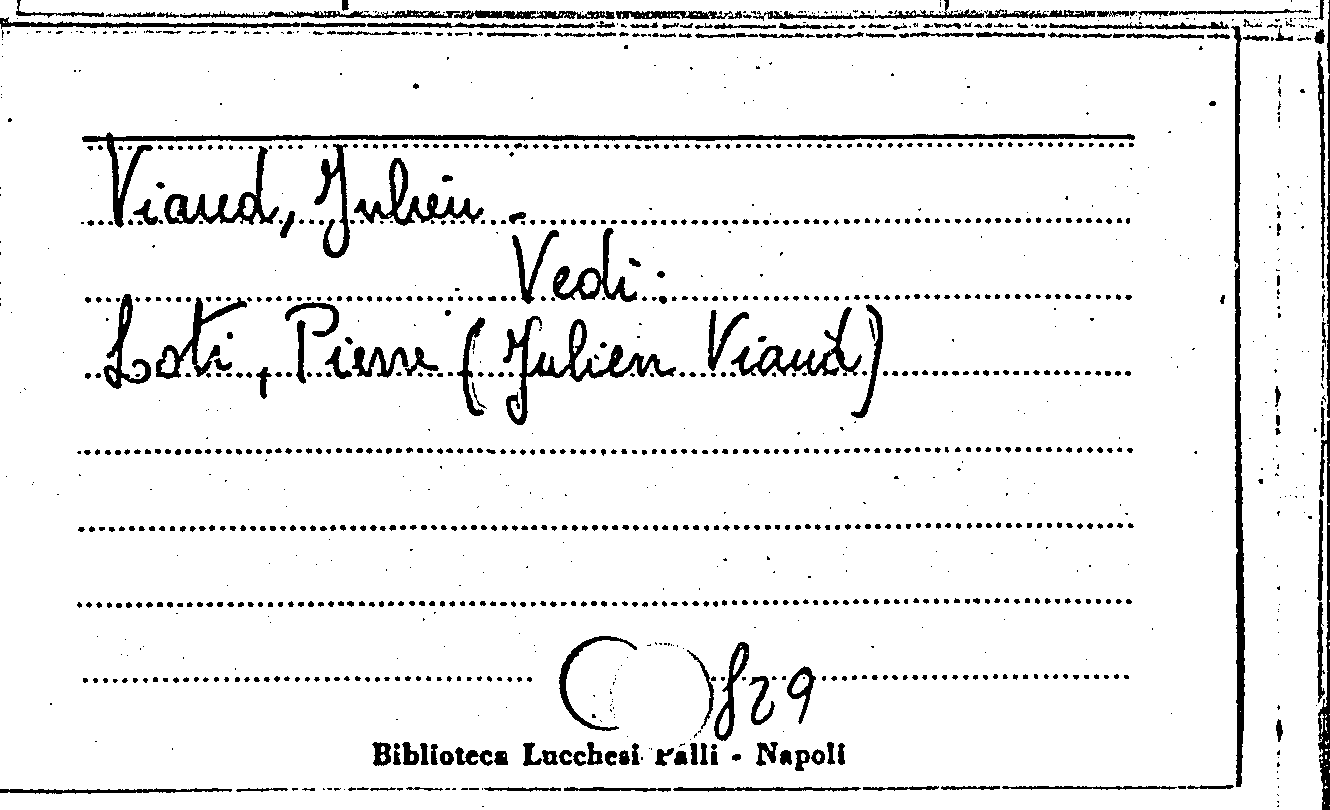 Viaud, Julien -
Vedi:
Loti, Pierre (Julien Viaud)
829
Biblioteca Lucchesi Palli - Napoli